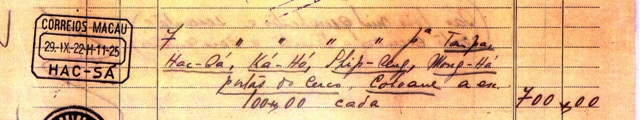 CORREIOS MACAU
29.IX.22-H-11-25
HAC-SÁ
7 " " " " pª Taipa,
Hac-Sá, Ká-Hó, Ship-Seng, Mong-Há
portas do Cerco, Coloane a esc.
100$00 cada 700$00